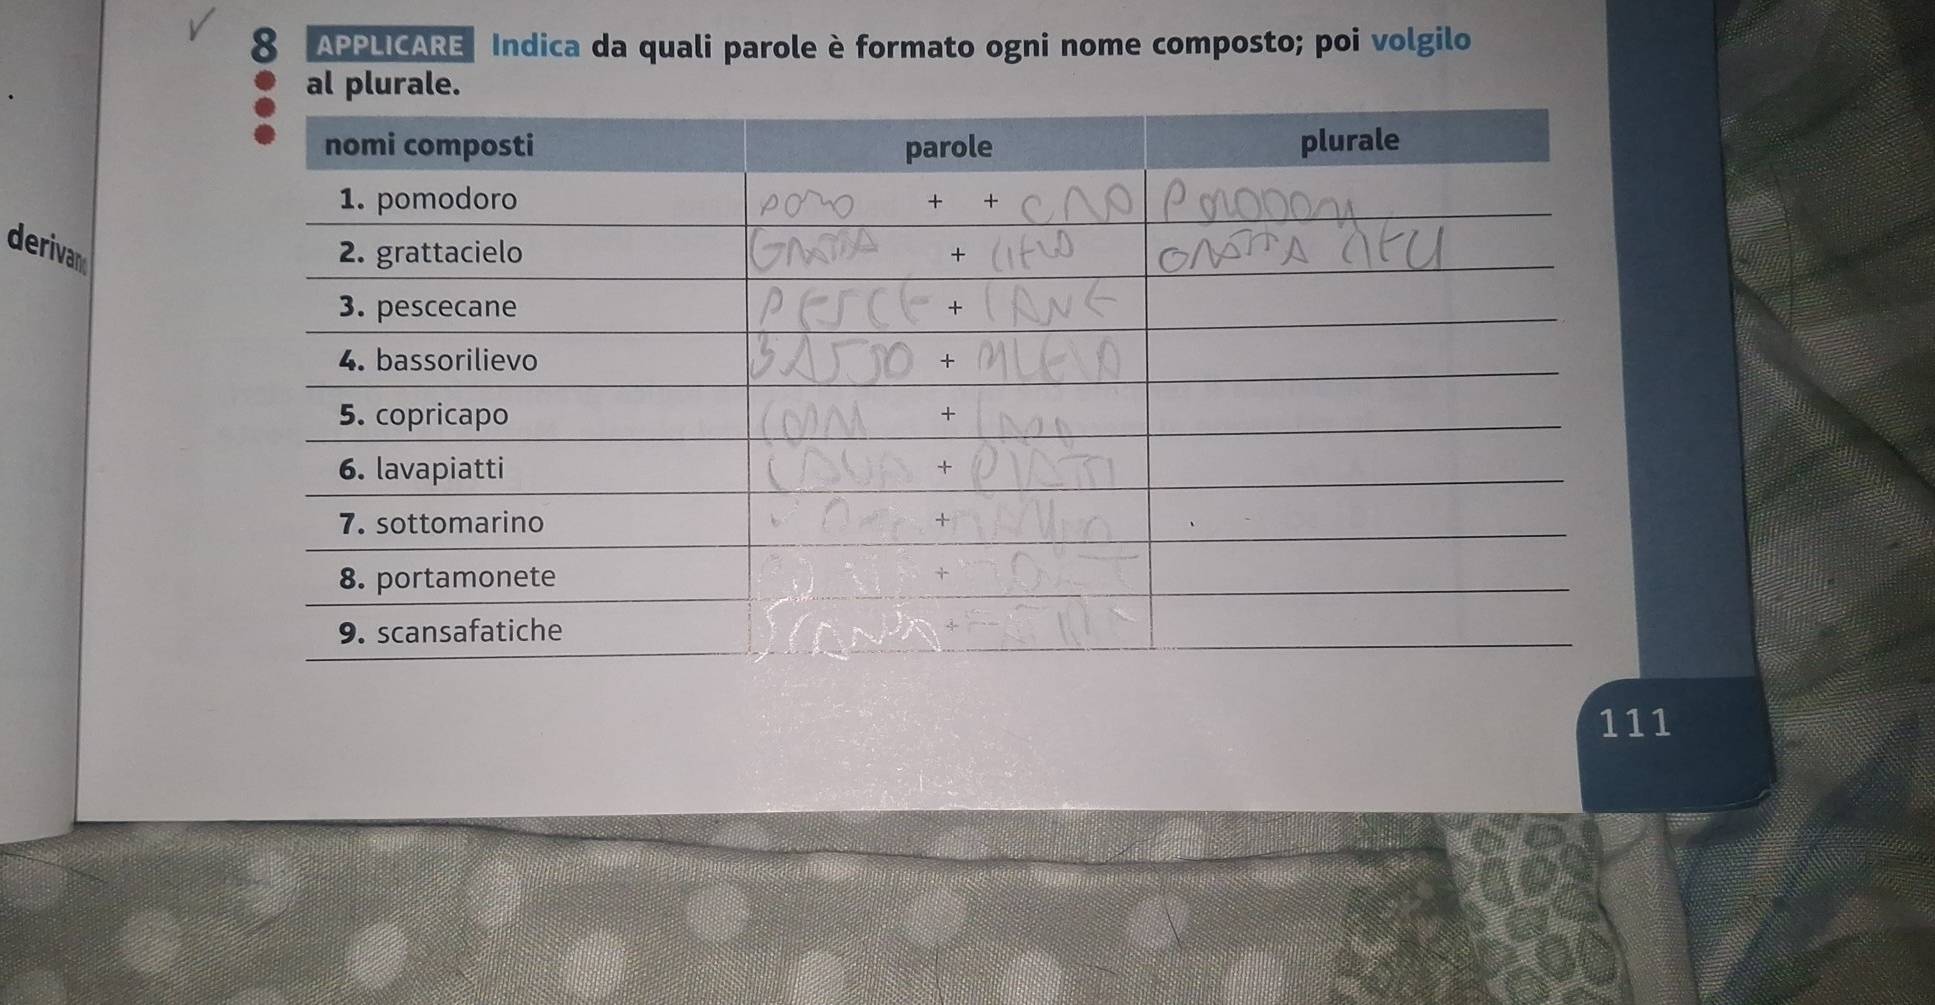 8 APPLICARE Indica da quali parole è formato ogni nome composto; poi volgilo
al plurale.
nomi composti parole plurale
1. pomodoro + +
2. grattacielo GRATTA + CIELO GRATTA CIELI
3. pescecane PESCE + CANE
4. bassorilievo BASSO +
5. copricapo +
6. lavapiatti LAVA + PIATTI
7. sottomarino +
8. portamonete +
9. scansafatiche SCANSA +
111